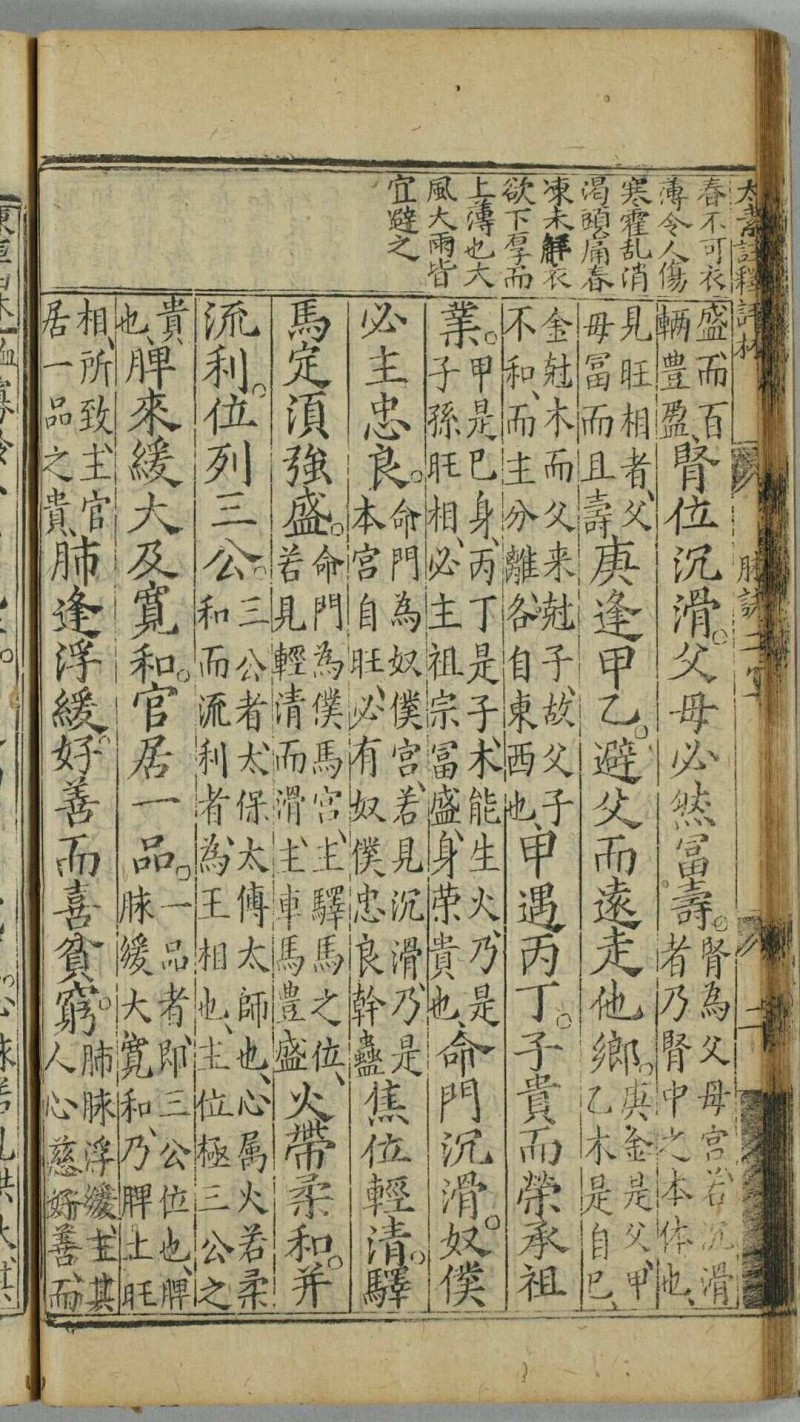 春不可衣
薄令人傷
寒霍乱消
渴頭痛春
凍未解衣
欲下厚而
上薄也大
風大雨皆
宜避之
盛、而百
輌豊盈、
腎位沉滑。父母必然冨壽。
腎為父母宮、若沉滑
者乃腎中之本体也、
見旺相者、父
母冨而且壽
庚逢甲乙。避父而遠走他鄉。
庚金是父、甲
乙木是自己、
金尅木而父来尅子、故父子
不和、而主分離、各自東西也、
甲遇丙丁。子貴而榮承祖
業。
甲是巳身、丙丁是子、木能生火、乃是
子孫旺相、必主祖宗冨盛、身荣貴也、
命門沉滑。奴僕
必主忠良。
命門為奴僕宮、若見沉滑、乃是
本宮自旺、必有奴僕忠良幹蠱
焦位輕清。驛
馬定須強盛。
命門為僕馬宮、主驛馬之位、
若見輕清而滑、主車馬豊盛
火帶柔和。并
流利。位列三公。
三公者、太保太傅太師也、心属火若柔
和而流利者、為王相也、主位極三公之
貴
也、
脾來緩大及寬和。官居一品。
一品者、即三公位也、脾
脉緩大、寬和、乃脾土旺
相、所致、主官
居一品之貴、
肺逢浮緩。好善而喜貧窮。
肺脉浮緩、主其
人心慈好善、而